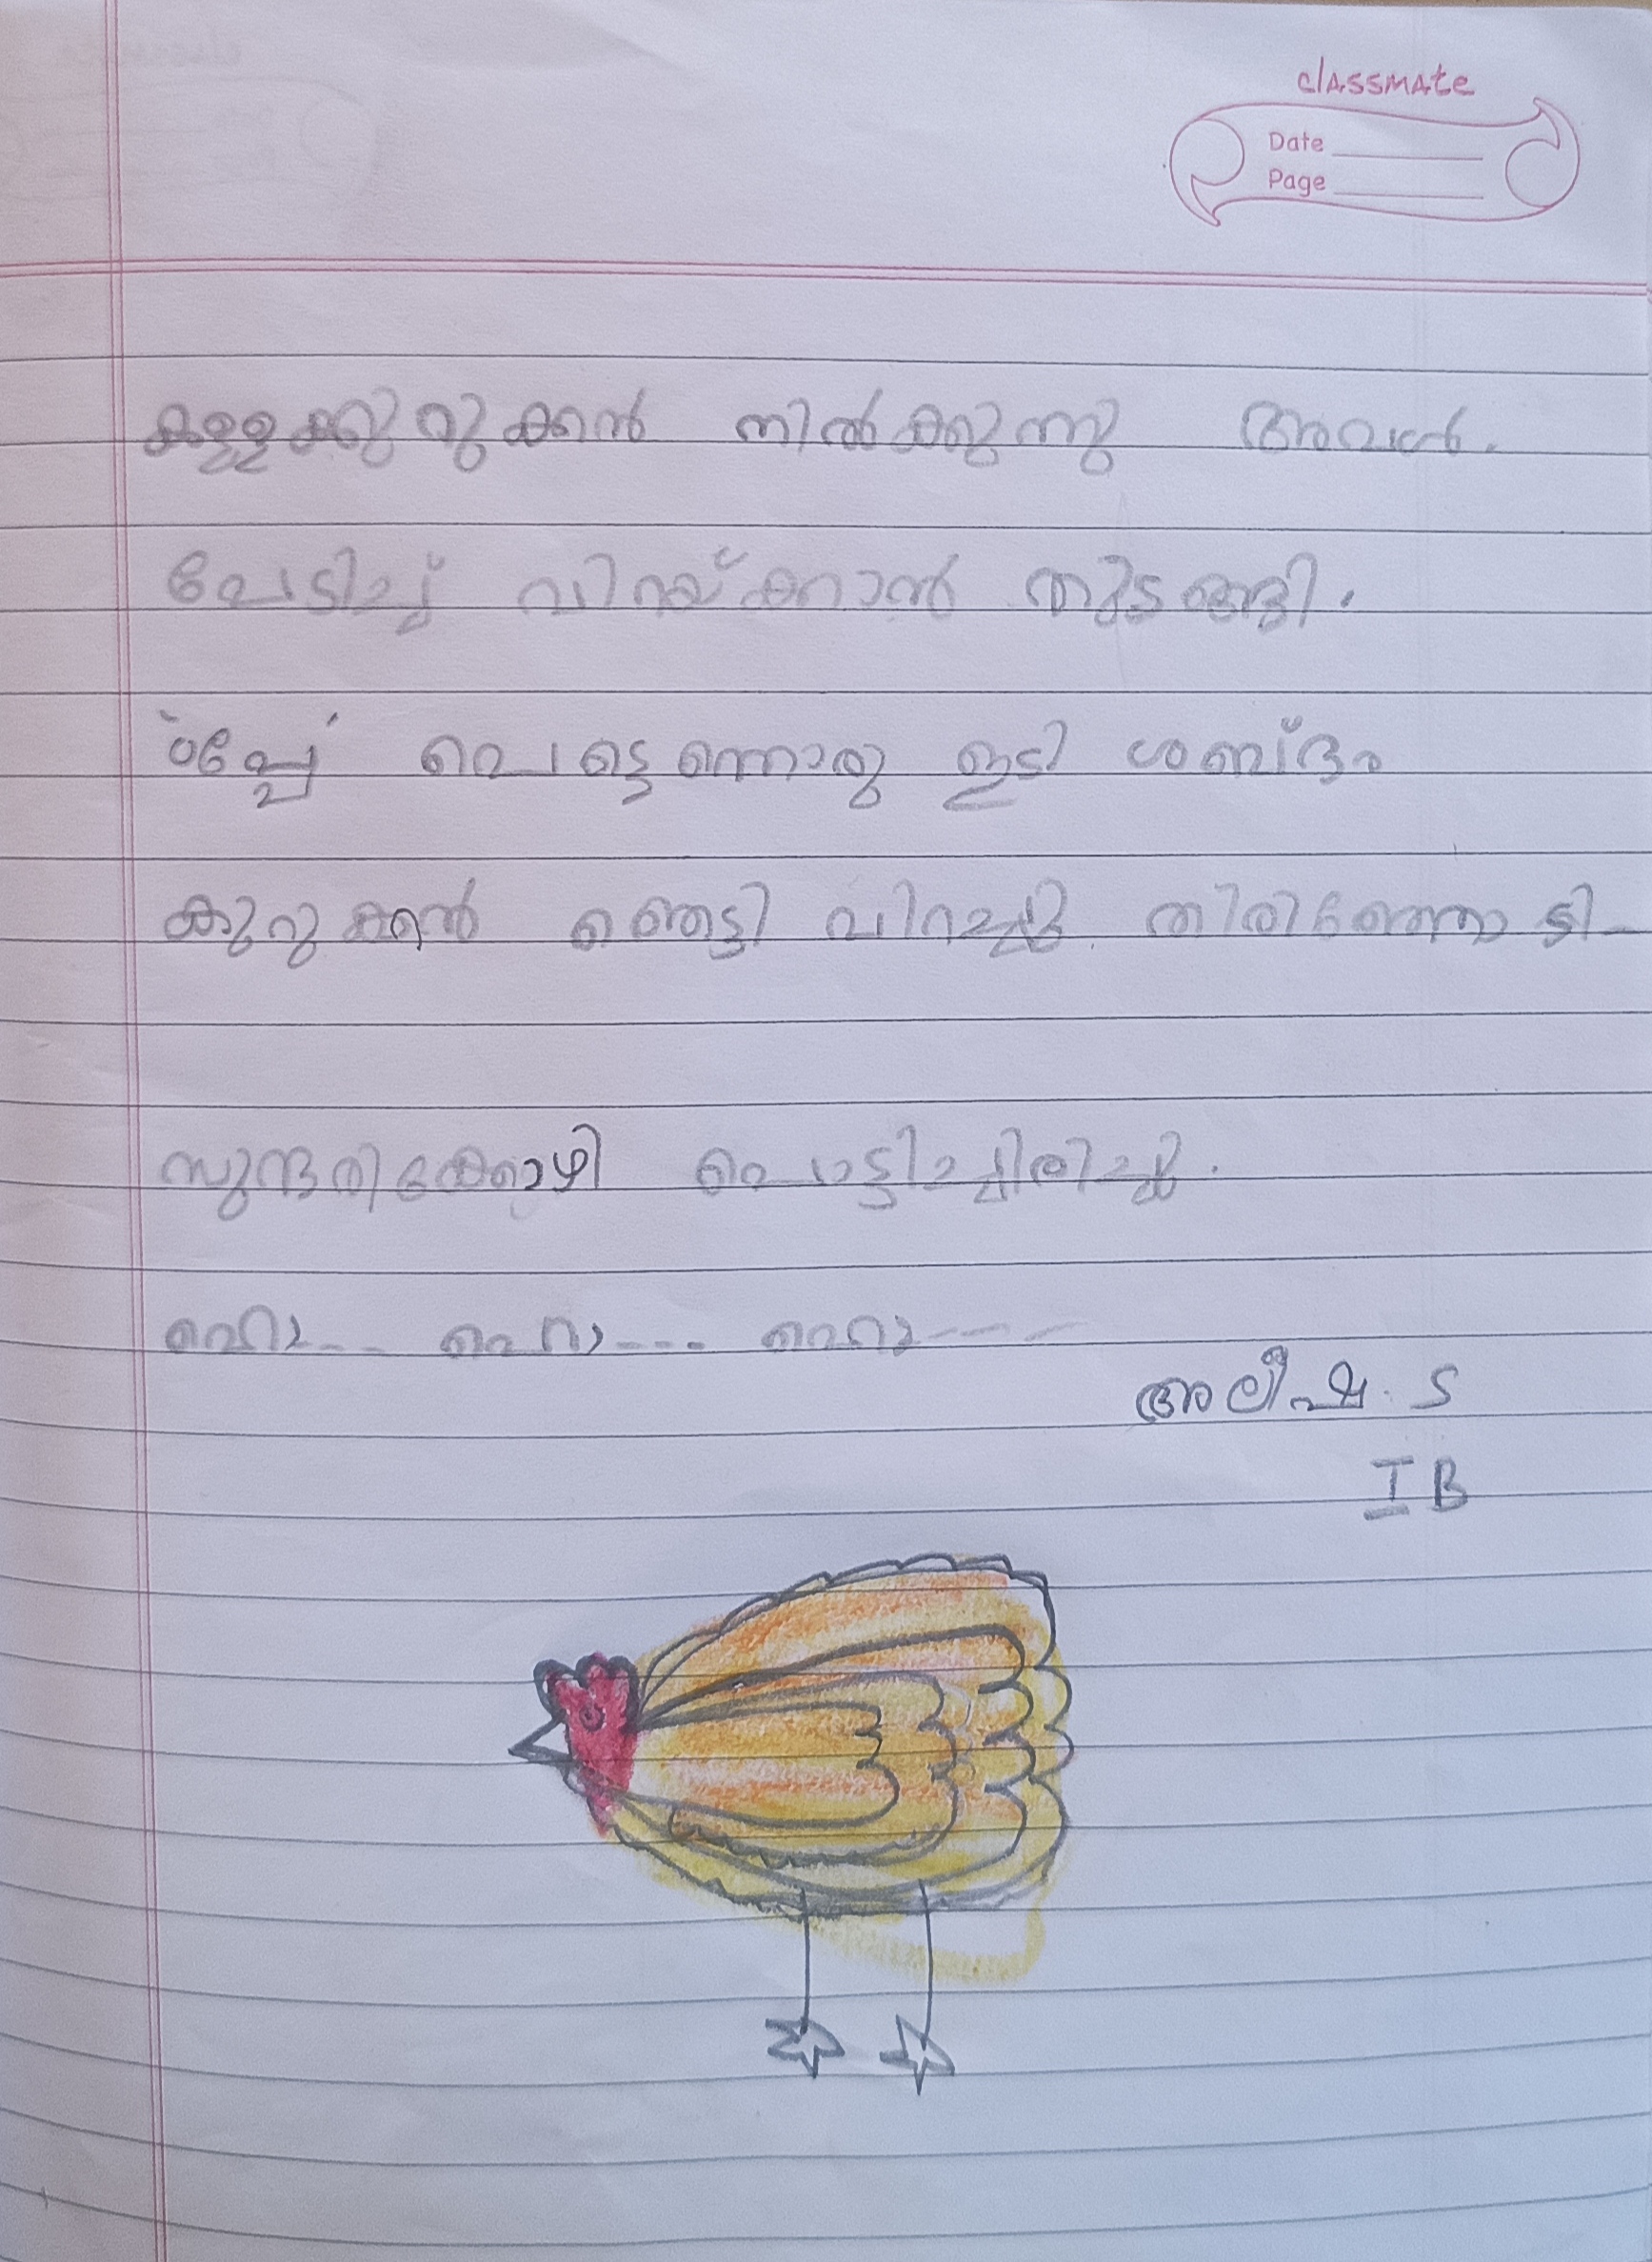 classmate
Date
Page
കള്ളക്കുറുക്കൻ നിൽക്കുന്നു അവൾ.
പേടിച്ച് വിറയ്ക്കാൻ തുടങ്ങി.
'ഠപ്പേ' പെട്ടെന്നൊരു ഇടി ശബ്ദം
കുറുക്കൻ ഞെട്ടി വിറച്ചു തിരിഞ്ഞോടി
സുന്ദരിക്കോഴി പൊട്ടിച്ചിരിച്ചു.
ഹെഹാ... ഹെഹാ... ഹെഹാ...
അലീഷ. S
I B